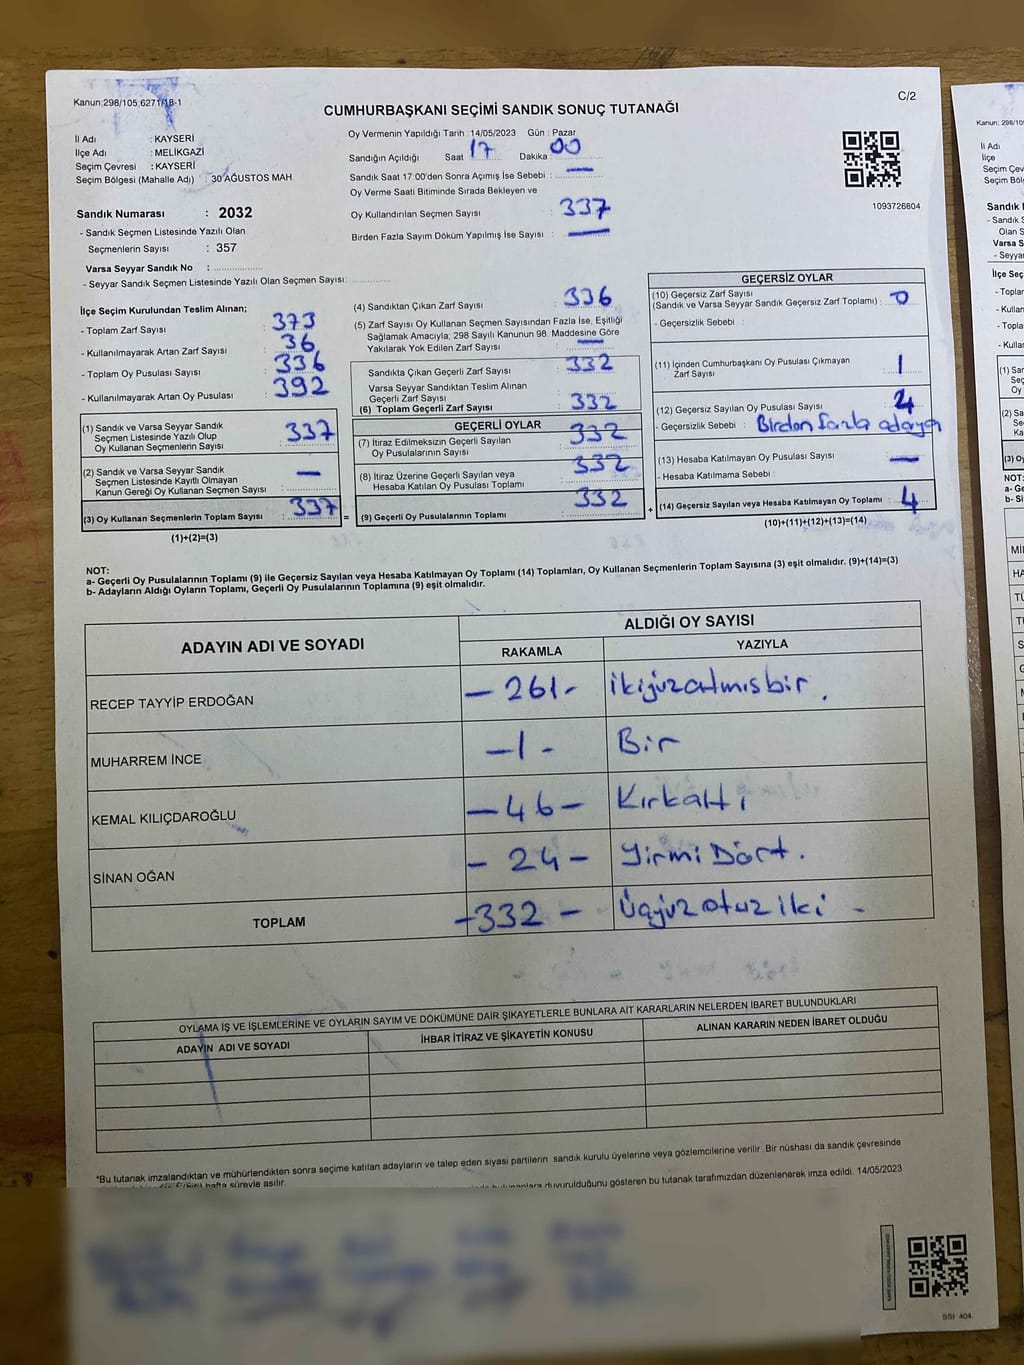 Kanun;298/105,6271/18-1
C/2
CUMHURBAŞKANI SEÇİMİ SANDIK SONUÇ TUTANAĞI
İl Adı : KAYSERİ
İlçe Adı : MELİKGAZİ
Seçim Çevresi : KAYSERİ
Seçim Bölgesi (Mahalle Adı) : 30 AĞUSTOS MAH
Sandık Numarası : 2032
- Sandık Seçmen Listesinde Yazılı Olan
Seçmenlerin Sayısı : 357
Varsa Seyyar Sandık No :
- Seyyar Sandık Seçmen Listesinde Yazılı Olan Seçmen Sayısı:
Oy Vermenin Yapıldığı Tarih : 14/05/2023 Gün : Pazar
Sandığın Açıldığı Saat 17 Dakika 00
Sandık Saat 17:00'den Sonra Açımış İse Sebebi : —
Oy Verme Saati Bitiminde Sırada Bekleyen ve
Oy Kullandırılan Seçmen Sayısı : 337
Birden Fazla Sayım Döküm Yapılmış İse Sayısı : —
1093726804
İlçe Seçim Kurulundan Teslim Alınan;
- Toplam Zarf Sayısı : 373
- Kullanılmayarak Artan Zarf Sayısı : 36
- Toplam Oy Pusulası Sayısı : 336
- Kullanılmayarak Artan Oy Pusulası : 392
(1) Sandık ve Varsa Seyyar Sandık
Seçmen Listesinde Yazılı Olup
Oy Kullanan Seçmenlerin Sayısı : 337
(2) Sandık ve Varsa Seyyar Sandık
Seçmen Listesinde Kayıtlı Olmayan
Kanun Gereği Oy Kullanan Seçmen Sayısı : —
(3) Oy Kullanan Seçmenlerin Toplam Sayısı : 337 =
(1)+(2)=(3)
(4) Sandıktan Çıkan Zarf Sayısı : 336
(5) Zarf Sayısı Oy Kullanan Seçmen Sayısından Fazla İse, Eşitliği
Sağlamak Amacıyla; 298 Sayılı Kanunun 98. Maddesine Göre
Yakılarak Yok Edilen Zarf Sayısı : —
Sandıkta Çıkan Geçerli Zarf Sayısı : 332
Varsa Seyyar Sandıktan Teslim Alınan
Geçerli Zarf Sayısı :
(6) Toplam Geçerli Zarf Sayısı : 332
GEÇERLİ OYLAR
(7) İtiraz Edilmeksizin Geçerli Sayılan
Oy Pusulalarının Sayısı : 332
(8) İtiraz Üzerine Geçerli Sayılan veya
Hesaba Katılan Oy Pusulası Toplamı : 332
(9) Geçerli Oy Pusulalarının Toplamı : 332 +
GEÇERSİZ OYLAR
(10) Geçersiz Zarf Sayısı
(Sandık ve Varsa Seyyar Sandık Geçersiz Zarf Toplamı) : 0
- Geçersizlik Sebebi :
(11) İçinden Cumhurbaşkanı Oy Pusulası Çıkmayan
Zarf Sayısı : 1
(12) Geçersiz Sayılan Oy Pusulası Sayısı :
- Geçersizlik Sebebi : Birden fazla adaya
(13) Hesaba Katılmayan Oy Pusulası Sayısı : —
- Hesaba Katılmama Sebebi :
(14) Geçersiz Sayılan veya Hesaba Katılmayan Oy Toplamı : 4
(10)+(11)+(12)+(13)=(14)
NOT:
a- Geçerli Oy Pusulalarının Toplamı (9) ile Geçersiz Sayılan veya Hesaba Katılmayan Oy Toplamı (14) Toplamları, Oy Kullanan Seçmenlerin Toplam Sayısına (3) eşit olmalıdır. (9)+(14)=(3)
b- Adayların Aldığı Oyların Toplamı, Geçerli Oy Pusulalarının Toplamına (9) eşit olmalıdır.
ADAYIN ADI VE SOYADI ALDIĞI OY SAYISI
RAKAMLA YAZIYLA
RECEP TAYYİP ERDOĞAN — 261 - İkiyüzatmışbir .
MUHARREM İNCE — 1 - Bir
KEMAL KILIÇDAROĞLU — 46 — Kırkaltı
SİNAN OĞAN — 24 — Yirmi Dört .
TOPLAM — 332 — Üçyüz otuz iki -
OYLAMA İŞ VE İŞLEMLERİNE VE OYLARIN SAYIM VE DÖKÜMÜNE DAİR ŞİKAYETLERLE BUNLARA AİT KARARLARIN NELERDEN İBARET BULUNDUKLARI
ADAYIN ADI VE SOYADI İHBAR İTİRAZ VE ŞİKAYETİN KONUSU ALINAN KARARIN NEDEN İBARET OLDUĞU
*Bu tutanak imzalandıktan ve mühürlendikten sonra seçime katılan adayların ve talep eden siyasi partilerin sandık kurulu üyelerine veya gözlemcilerine verilir. Bir nüshası da sandık çevresinde
hafta süreyle asılır. duyurulduğunu gösteren bu tutanak tarafımızdan düzenlenerek imza edildi. 14/05/2023
SSI 404
Kanun; 298/10
İl Adı
İlçe
Seçim Çev
Seçim Böl
Sandık
- Sandık S
Olan S
Varsa S
- Seyya
İlçe Seç
- Toplar
- Kullar
- Topla
- Kulla
NOT: